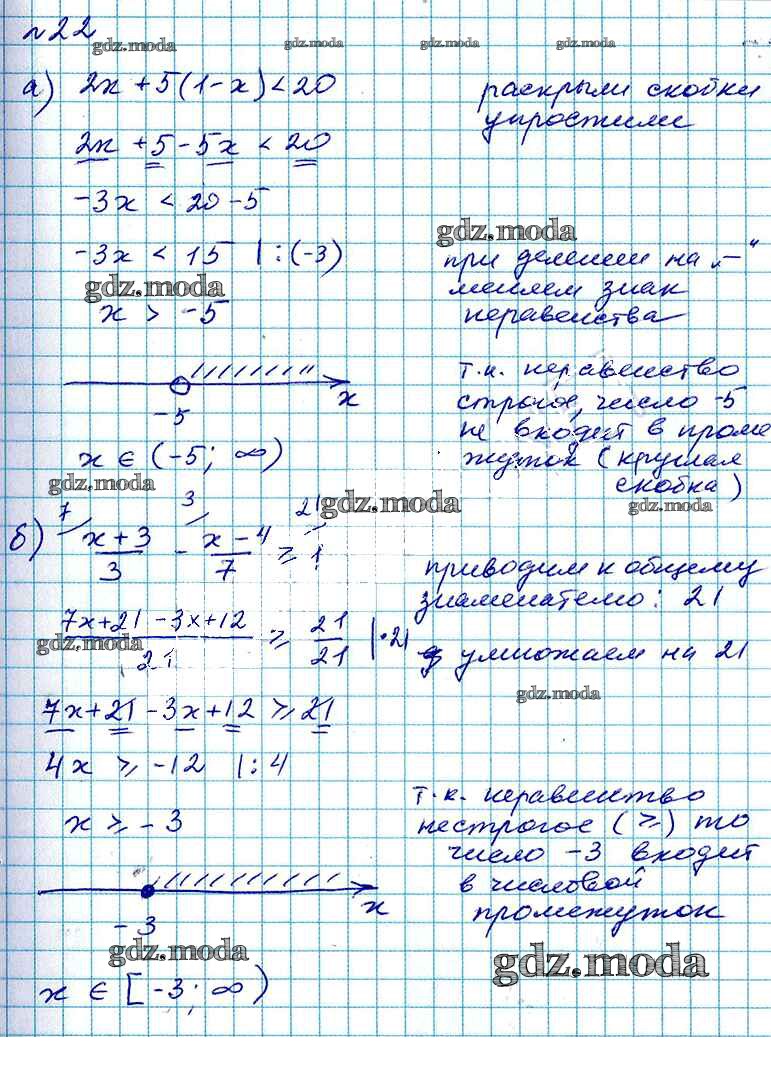 №22
gdz.moda gdz.moda gdz.moda
а) 2x + 5(1-x) < 20 раскрыли скобки
упростили
2x + 5 - 5x < 20
-3x < 20 - 5
gdz.moda
-3x < 15 | : (-3) при делении на „—“
gdz.moda меняем знак
x > -5 неравенства
т.к. неравенство
-5 x строгое, число -5
не входит в проме
x ∈ (-5; ∞) жуток (круглая
gdz.moda скобка)
gdz.moda
7 3 21
б) x + 3 / 3 - x - 4 / 7 ≥ 1 приводим к общему
знаменателю: 21
7x + 21 - 3x + 12 / 21 ≥ 21 / 21 | · 21 умножаем на 21
gdz.moda
gdz.moda
7x + 21 - 3x + 12 ≥ 21
4x ≥ -12 | : 4
т.к. неравенство
x ≥ -3 нестрогое (≥) то
число -3 входит
в числовой
-3 x промежуток
gdz.moda gdz.moda
x ∈ [-3; ∞)